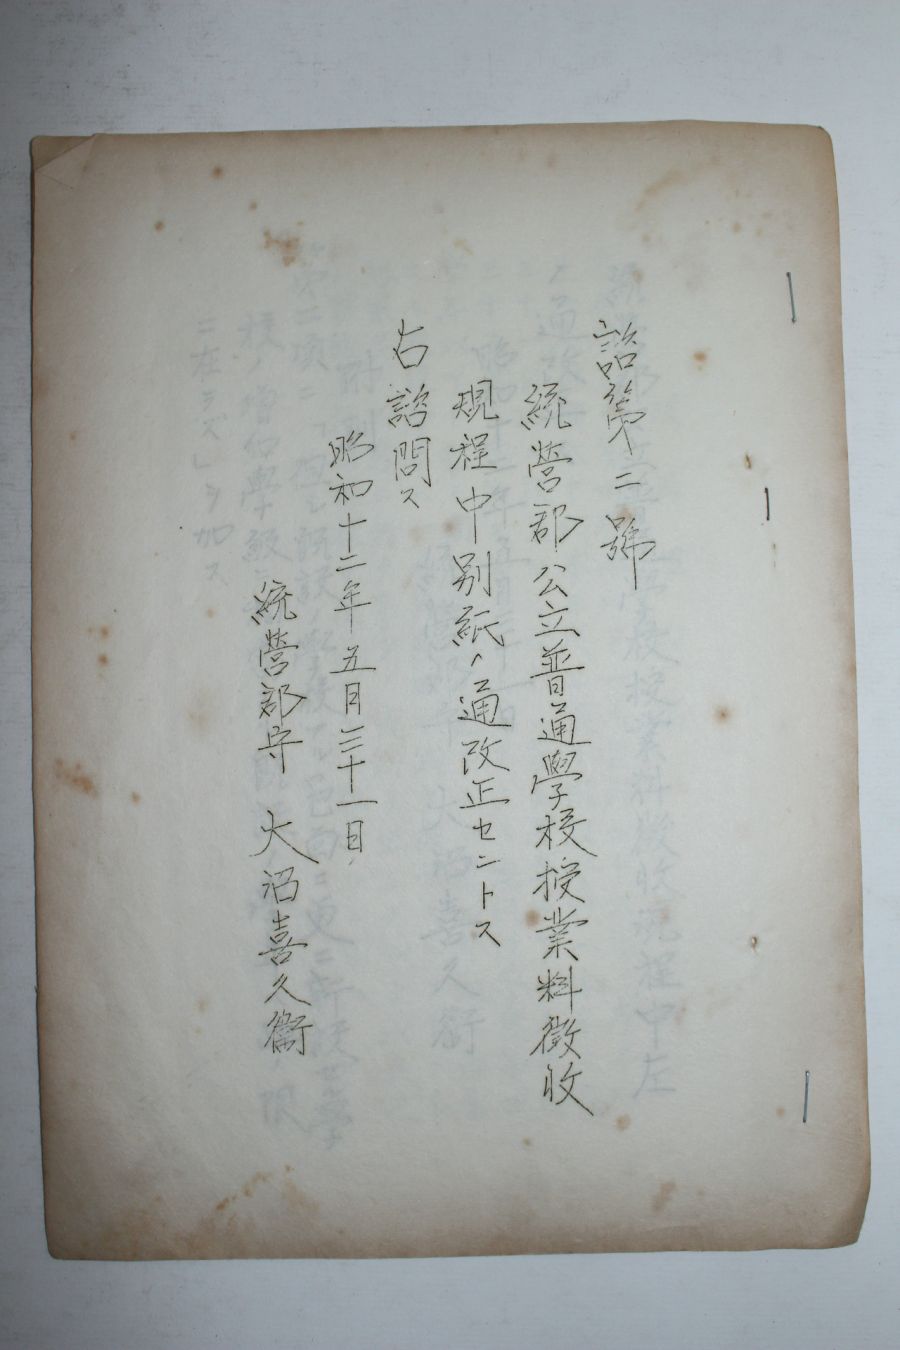 諮第二號
統營郡公立普通學校授業料徴收
規程中別紙ノ通改正セントス
右諮問ス
昭和十二年五月三十一日
統營郡守 大沼喜久衞